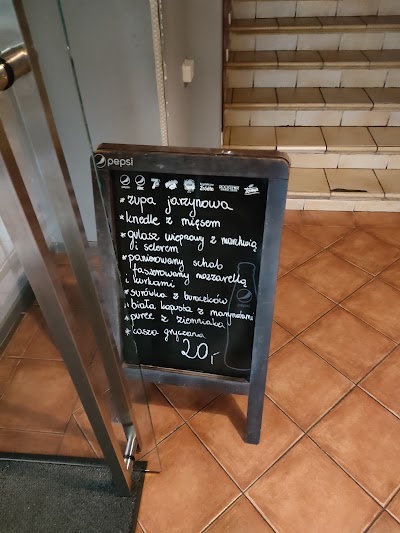 pepsi
* zupa jarzynowa
* knedle z mięsem
* gulasz wieprzowy z marchwią
i selerem
* panierowany schab
faszerowany mozzarellą
i kurkami
* surówka z buraczków
* biała kapusta z marynatami
* puree z ziemniaka
* kasza gryczana
20,-